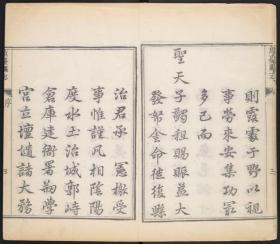 則露處于野以視
事勞來安集功冣
多已而
聖天子蠲租賜賑蓋大
發帑金命復後縣
治君承憲檄受
事惟謹凡相陰陽
度水土治城郭峙
倉庫建衙署曁學
宮立壇壝諸大務
序